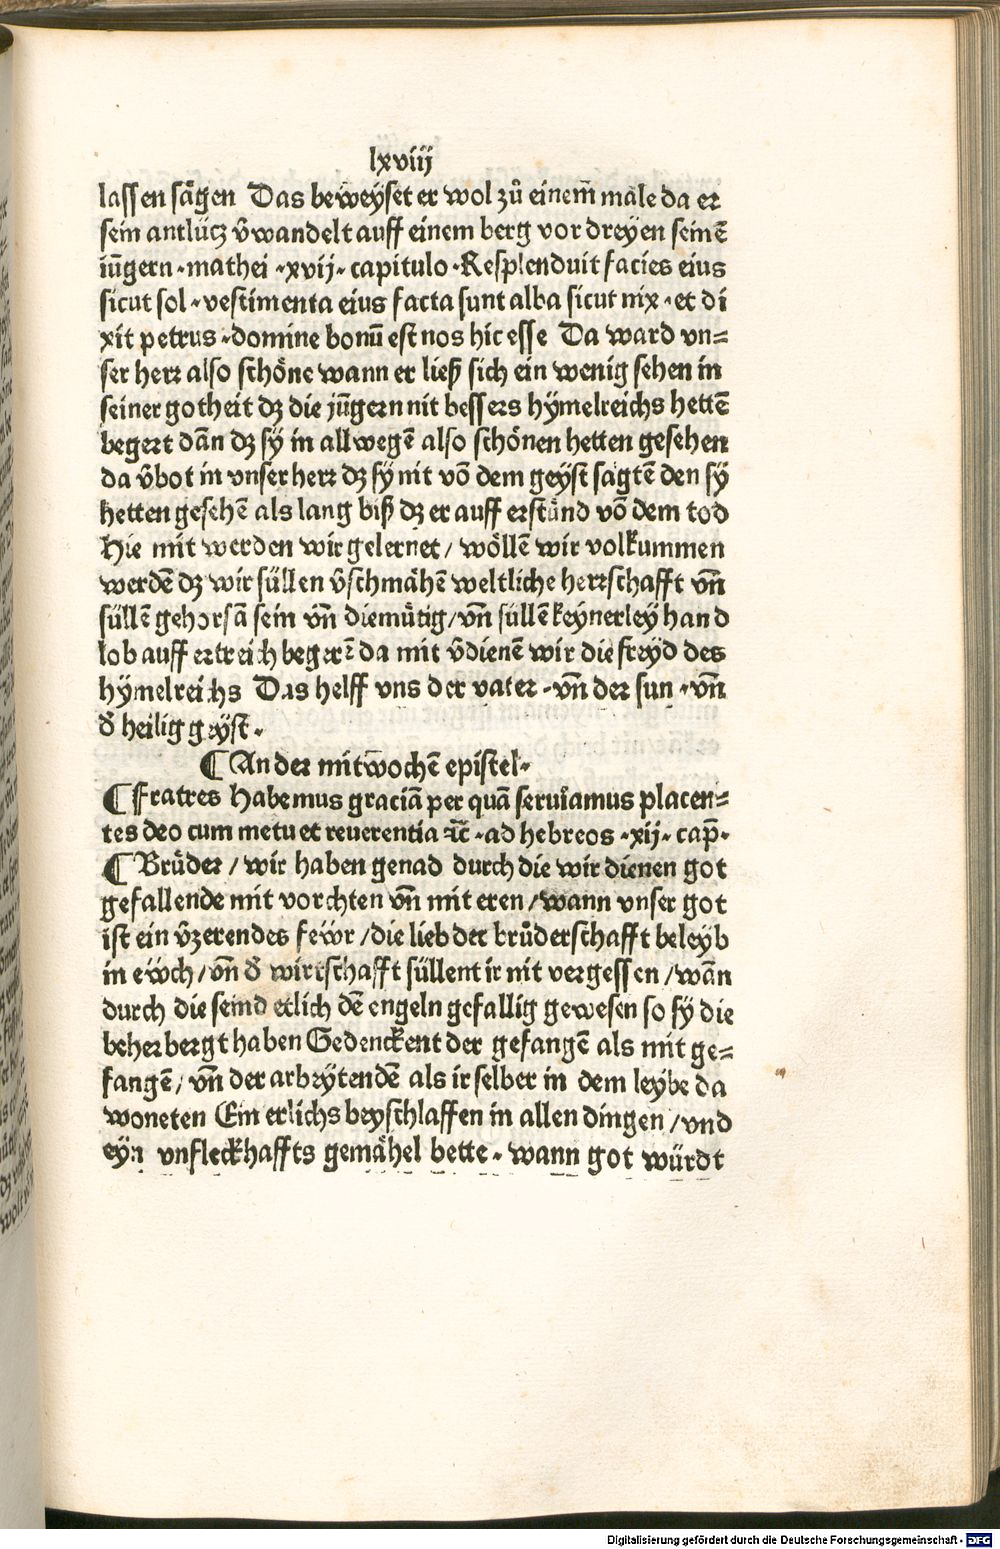 lxviii
lassen sagen Das beweyset er wol zů einem̄ male da er
sein antlücz v̄wandelt auff einem berg vor dreyen seinē
iūgern ·mathei ·xvij· capitulo ·Resplenduit facies eius
sicut sol · vestimenta eius facta sunt alba sicut nix · et di
xit petrus ·domine bonū est nos hic esse Da ward vn=
ser herr also schöne wann er ließ sich ein wenig sehen in
seiner gotheit dz die jūgern nit bessers hymelreichs hettē
begert dān dz sy in allwegē also schönen hetten gesehen
da v̄bot in vnser herr dz sy nit vō dem geyst sagtē den sy
hetten gesehē als lang biß dz er auff erständ vō dem tod
Hie mit werden wir gelernet / wöllē wir volkummen
werdē dz wir süllen v̄schmähē weltliche herrschafft vn̄
süllē gehorsā sein vn̄ diemütig/ vn̄ süllē keynerley hand
lob auff ertreich begerē da mit v̄dienē wir die freyd des
hymelreichs Das helff vns der vater · vn̄ der sun · vn̄
d̄ heilig geyst ·
¶ An der mitwochē epistel·
¶ Fratres habemus graciā per quā seruiamus placen=
tes deo cum metu et reuerentia ⁊c̄ · ad hebreos ·xij· cap̄·
¶ Brüder / wir haben genad durch die wir dienen got
gefallende mit vorchten vn̄ mit eren / wann vnser got
ist ein v̄zerendes fewr / die lieb der brüderschafft beleyb
in ewch / vn̄ d̄ wirtschafft süllent ir nit vergessen / wān
durch die seind etlich dē engeln gefallig gewesen so sy die
beherbergt haben Gedenckent der gefangē als mit ge=
fangē / vn̄ der arbeytendē als ir selber in dem leybe da
woneten Ein erlichs beyschlaffen in allen dingen / vnd
eyn vnfleckhaffts gemähel bette · wann got würdt
Digitalisierung gefördert durch die Deutsche Forschungsgemeinschaft - DFG